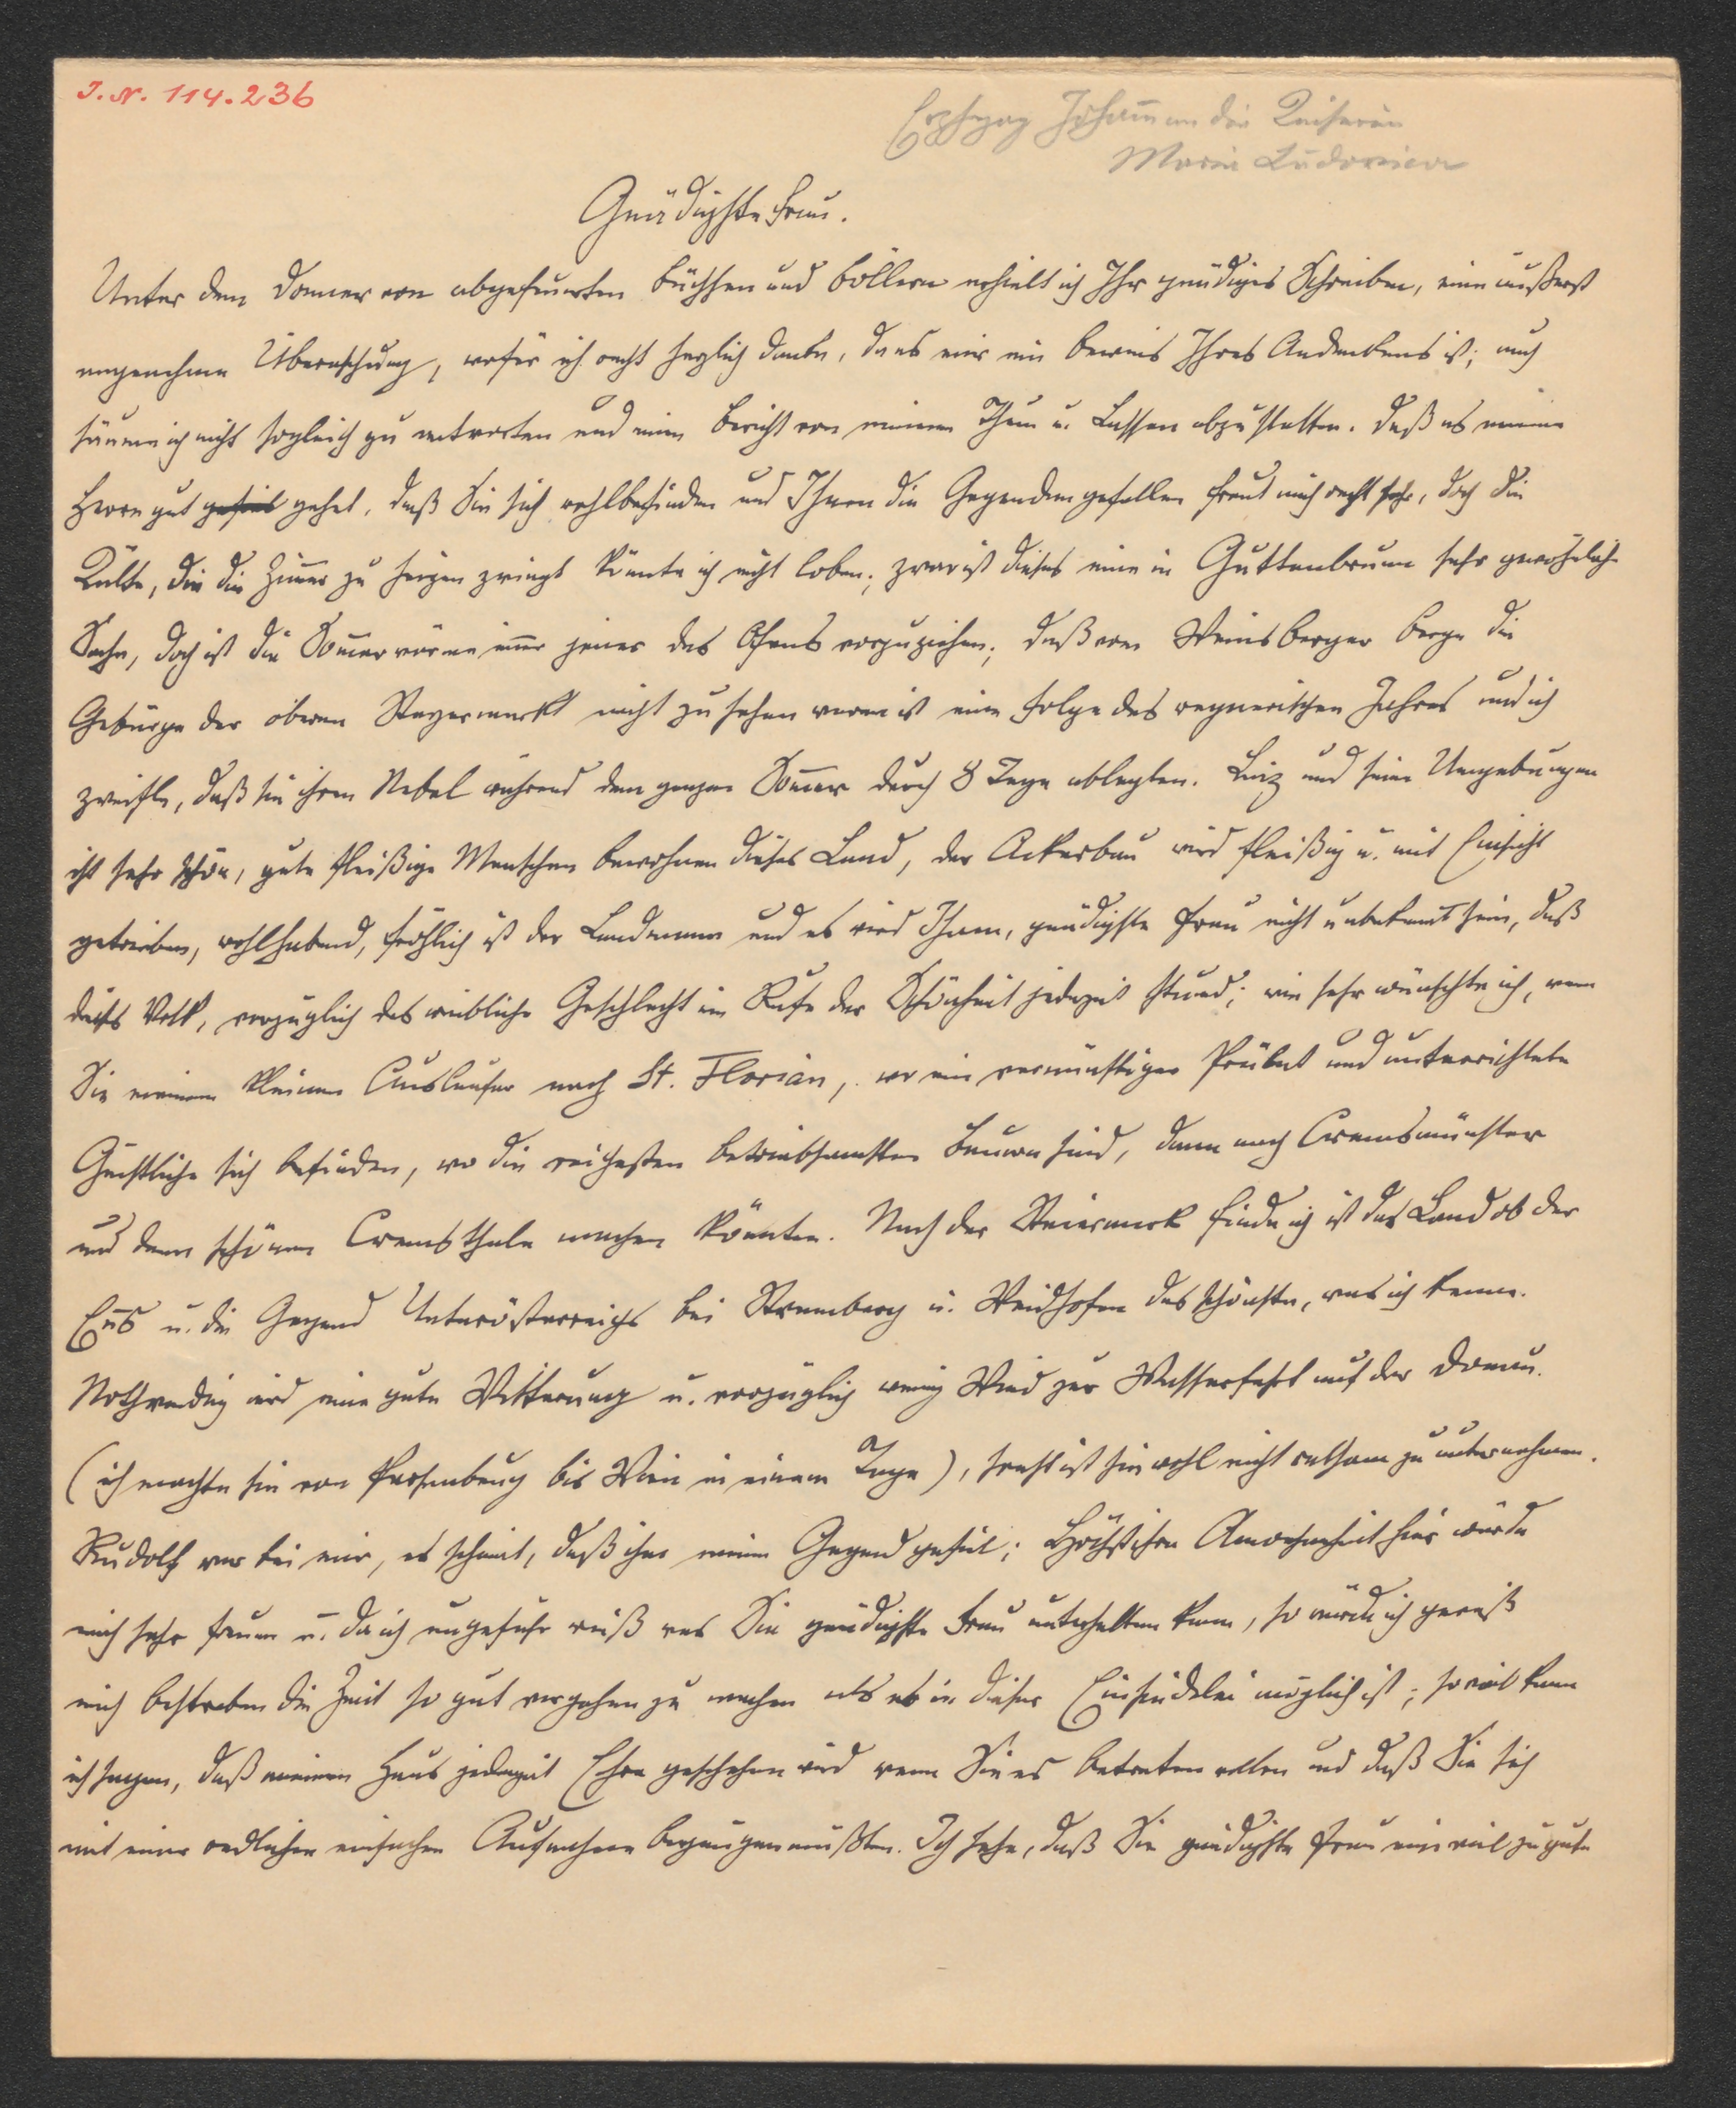 J. N. 114.236
Erzherzog Johann an die Kaiserin
Maria Ludovica
Gnädigste Frau.
Unter dem Donner von abgefeuerten Büchsen und Böllern erhielt ich Ihr gnädiges Schreiben, eine äußerst
angenehme Überraschung, wofür ich recht herzlich danke, da es mir ein Beweis Ihres Andenkens ist; auch
säume ich nicht sogleich zu antworten und einen Bericht von meinem Thun u. Lassen abzustatten. Daß es meinem
Herrn gut gehet, daß Sie sich wohlbefinden und Ihnen die Gegenden gefallen freut mich recht sehr, doch die
Kälte, die die Zimer zu heizen zwingt könnte ich nicht loben; zwar ist dieses eine in Guttenbrunn sehr gewöhnliche
Sache, doch ist die Somerwärme imer jener des Ofens vorzuziehen; daß vom Weinsberger Berge die
Gebürge der oberen Steyermarkt nicht zu sehen waren ist eine Folge des regnerischen Jahres und ich
zweifle, daß sie ihren Nebel während dem ganzen Somer durch 8 Tage ablegten. Linz und seine Umgebungen
ist sehr schön, gute fleißige Menschen bewohnen dieses Land, der Ackerbau wird fleißig u. mit Einsicht
getrieben, wohlhabend, fröhlich ist der Landmann und es wird Ihnen, gnädigste Frau nicht unbekannt sein, daß
dieses Volk, vorzüglich das weibliche Geschlecht im Rufe der Schönheit jederzeit stund; wie sehr wünschte ich, wenn
Sie einen kleinen Ausläufer nach St. Florian, wo ein vernünftiger Prälat und unterrichtete
Geistliche sich befinden, wo die reichesten betriebsamsten Bauern sind, dann nach Cremsmünster
und dem schönen Cremsthale machen könnten. Nach der Steiermark finde ich ist das Land ob der
Ens u. die Gegend Unterösterreichs bei Stremberg u. Weidhofen das schönste, was ich kenne.
Nothwendig wird eine gute Witterung u. vorzüglich wenig Wind zur Wasserfahrt auf der Donau.
(ich machte sie von Persenbeug bis Wien in einem Tage), sonst ist sie wohl nicht rathsam zu unternehmen.
Rudolf war bei mir, es scheint, daß ihm meine Gegend gefiel; Höchstihre Anwesenheit hier würde
mich sehr freuen u. da ich ungefähr weiß was Sie gnädigste Frau unterhalten kann, so würde ich gewiß
mich bestreben die Zeit so gut vergehen zu machen als es in dieser Einsiedelei möglich ist; so viel kann
ich sagen, daß meinem Haus jederzeit Ehre geschehen wird wenn Sie es betreten wollen und daß Sie sich
mit einer redlichen einfachen Aufnahme begnügen müßten. Ich sehe, daß Sie gnädigste Frau eine viel zu gute